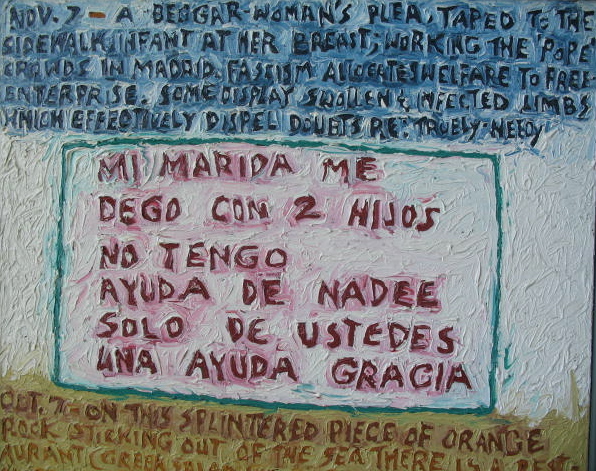 NOV. 7 - A BEGGAR-WOMAN'S PLEA, TAPED TO THE
SIDEWALK, INFANT AT HER BREAST, WORKING THE 'POPE'
CROWDS IN MADRID. FASCISM ALLOCATES WELFARE TO FREE-
ENTERPRISE. SOME DISPLAY SWOLLEN & INFECTED LIMBS
WHICH EFFECTIVELY DISPEL DOUBTS RE: TRUELY-NEEDY
MI MARIDA ME
DEGO CON 2 HIJOS
NO TENGO
AYUDA DE NADEE
SOLO DE USTEDES
UNA AYUDA GRACIA
OCT. 7 - ON THIS SPLINTERED PIECE OF ORANGE
ROCK STICKING OUT OF THE SEA THERE